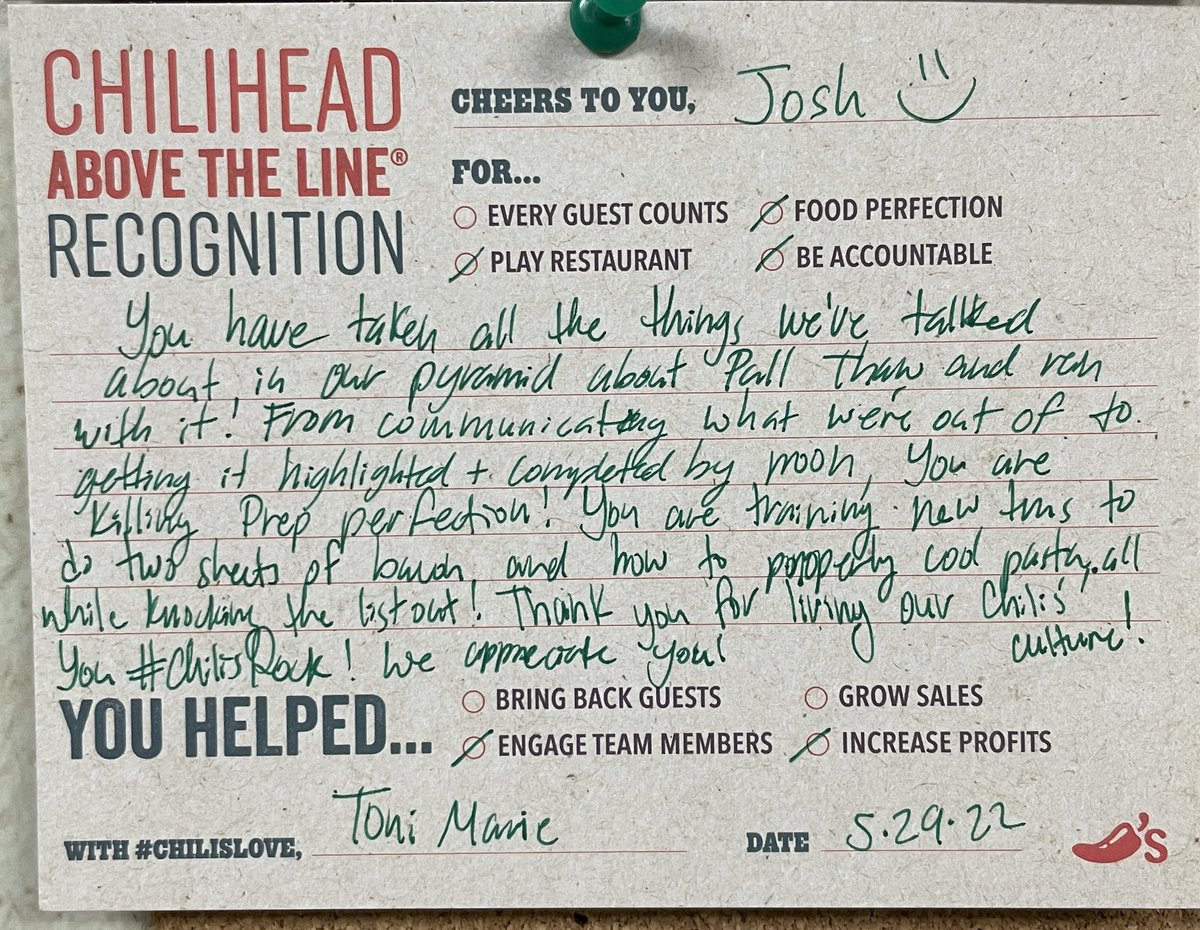 CHILIHEAD
ABOVE THE LINE®
RECOGNITION
CHEERS TO YOU, Josh
FOR...
EVERY GUEST COUNTS
FOOD PERFECTION
PLAY RESTAURANT
BE ACCOUNTABLE
You have taken all the things we've talked
about, in our pyramid about Pall Thaw and ran
with it! From communicating what we're out of to
getting it highlighted + completed by noon, You are
Killing Prep perfection! You are training new tms to
do two sheets of bacon, and how to properly cool pasta, all
while knocking the list out! Thank you for living our Chili's
culture!
You #ChilisRock! We appreciate you!
YOU HELPED...
BRING BACK GUESTS
GROW SALES
ENGAGE TEAM MEMBERS
INCREASE PROFITS
WITH #CHILISLOVE, Toni Marie
DATE 5.29.22
's